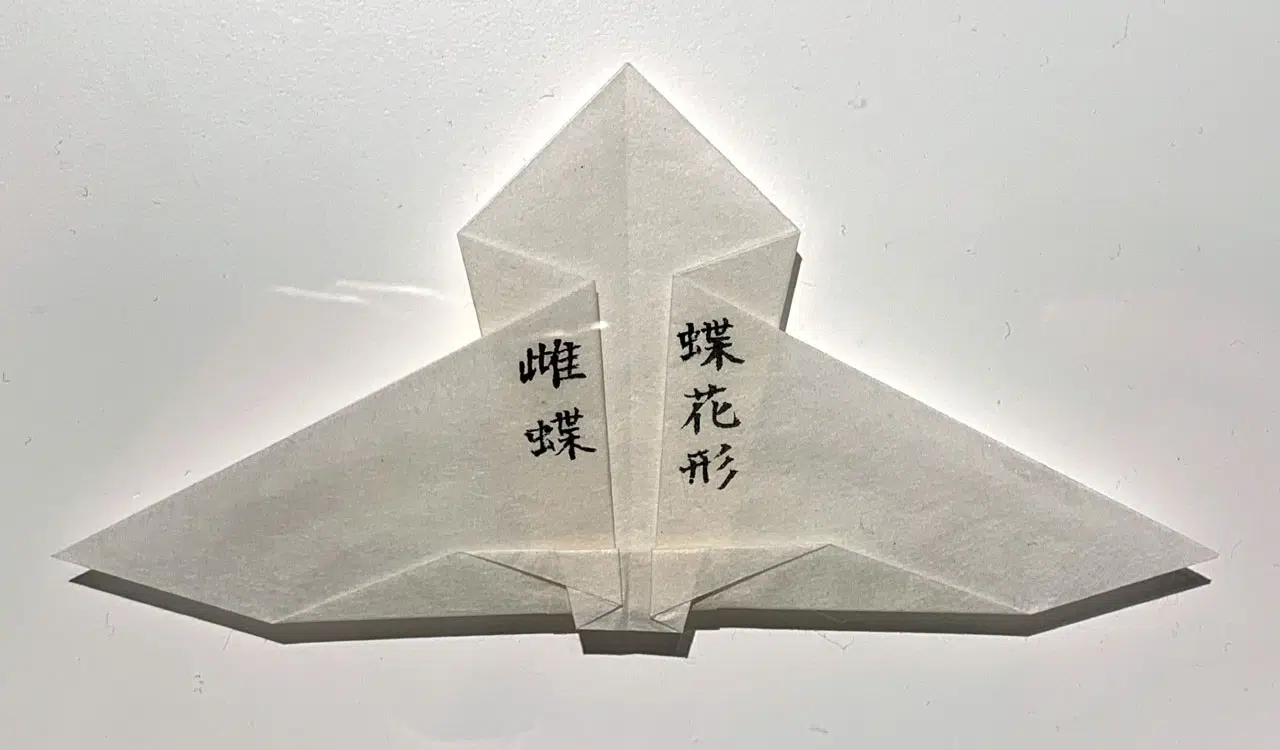 蝶花形
雌蝶